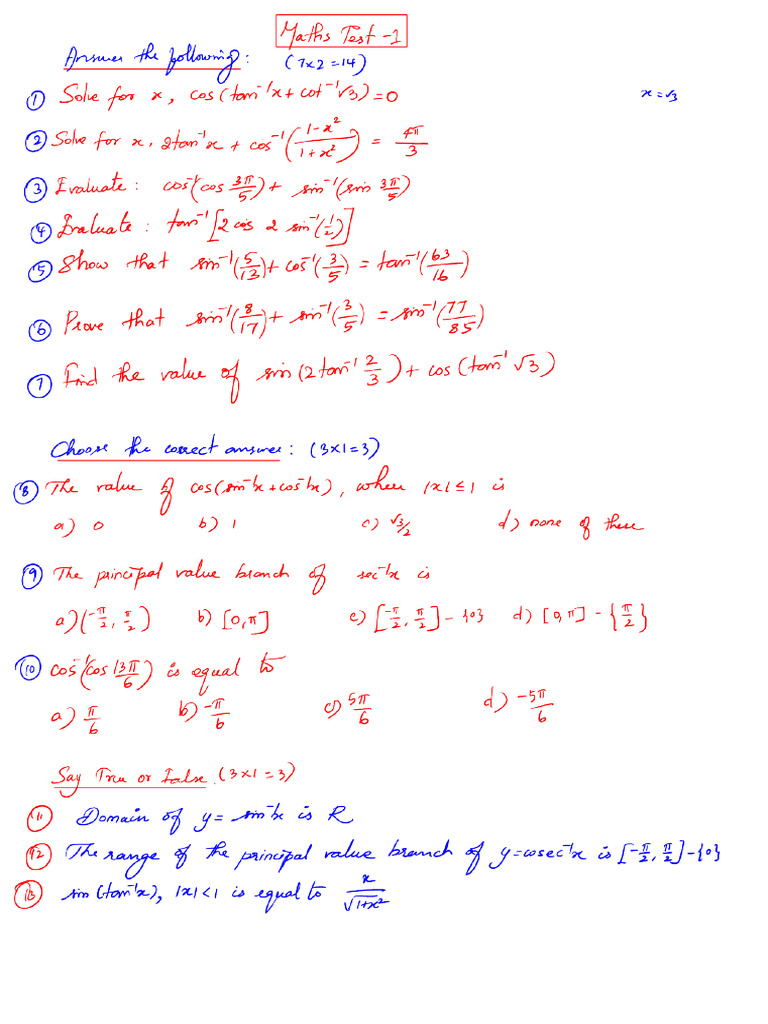 Maths Test -1
Answer the following: (7x2=14)
① Solve for x, cos(tan⁻¹x + cot⁻¹√3) = 0 x = √3
② Solve for x, 2tan⁻¹x + cos⁻¹((1-x²)/(1+x²)) = 4π/3
③ Evaluate: cos⁻¹(cos 3π/5) + sin⁻¹(sin 3π/5)
④ Evaluate: tan⁻¹[2 cos 2 sin⁻¹(1/2)]
⑤ Show that sin⁻¹(5/13) + cos⁻¹(3/5) = tan⁻¹(63/16)
⑥ Prove that sin⁻¹(8/17) + sin⁻¹(3/5) = sin⁻¹(77/85)
⑦ Find the value of sin(2tan⁻¹ 2/3) + cos(tan⁻¹ √3)
Choose the correct answer: (3x1=3)
⑧ The value of cos(sin⁻¹x + cos⁻¹x), where |x| ≤ 1 is
a) 0 b) 1 c) √3/2 d) none of these
⑨ The principal value branch of sec⁻¹x is
a) (-π/2, π/2) b) [0, π] c) [-π/2, π/2] - {0} d) [0, π] - {π/2}
⑩ cos⁻¹(cos 13π/6) is equal to
a) π/6 b) -π/6 c) 5π/6 d) -5π/6
Say True or False. (3x1=3)
⑪ Domain of y = sin⁻¹x is R
⑫ The range of the principal value branch of y = cosec⁻¹x is [-π/2, π/2] - {0}
⑬ sin(tan⁻¹x), |x| < 1 is equal to x/√(1+x²)